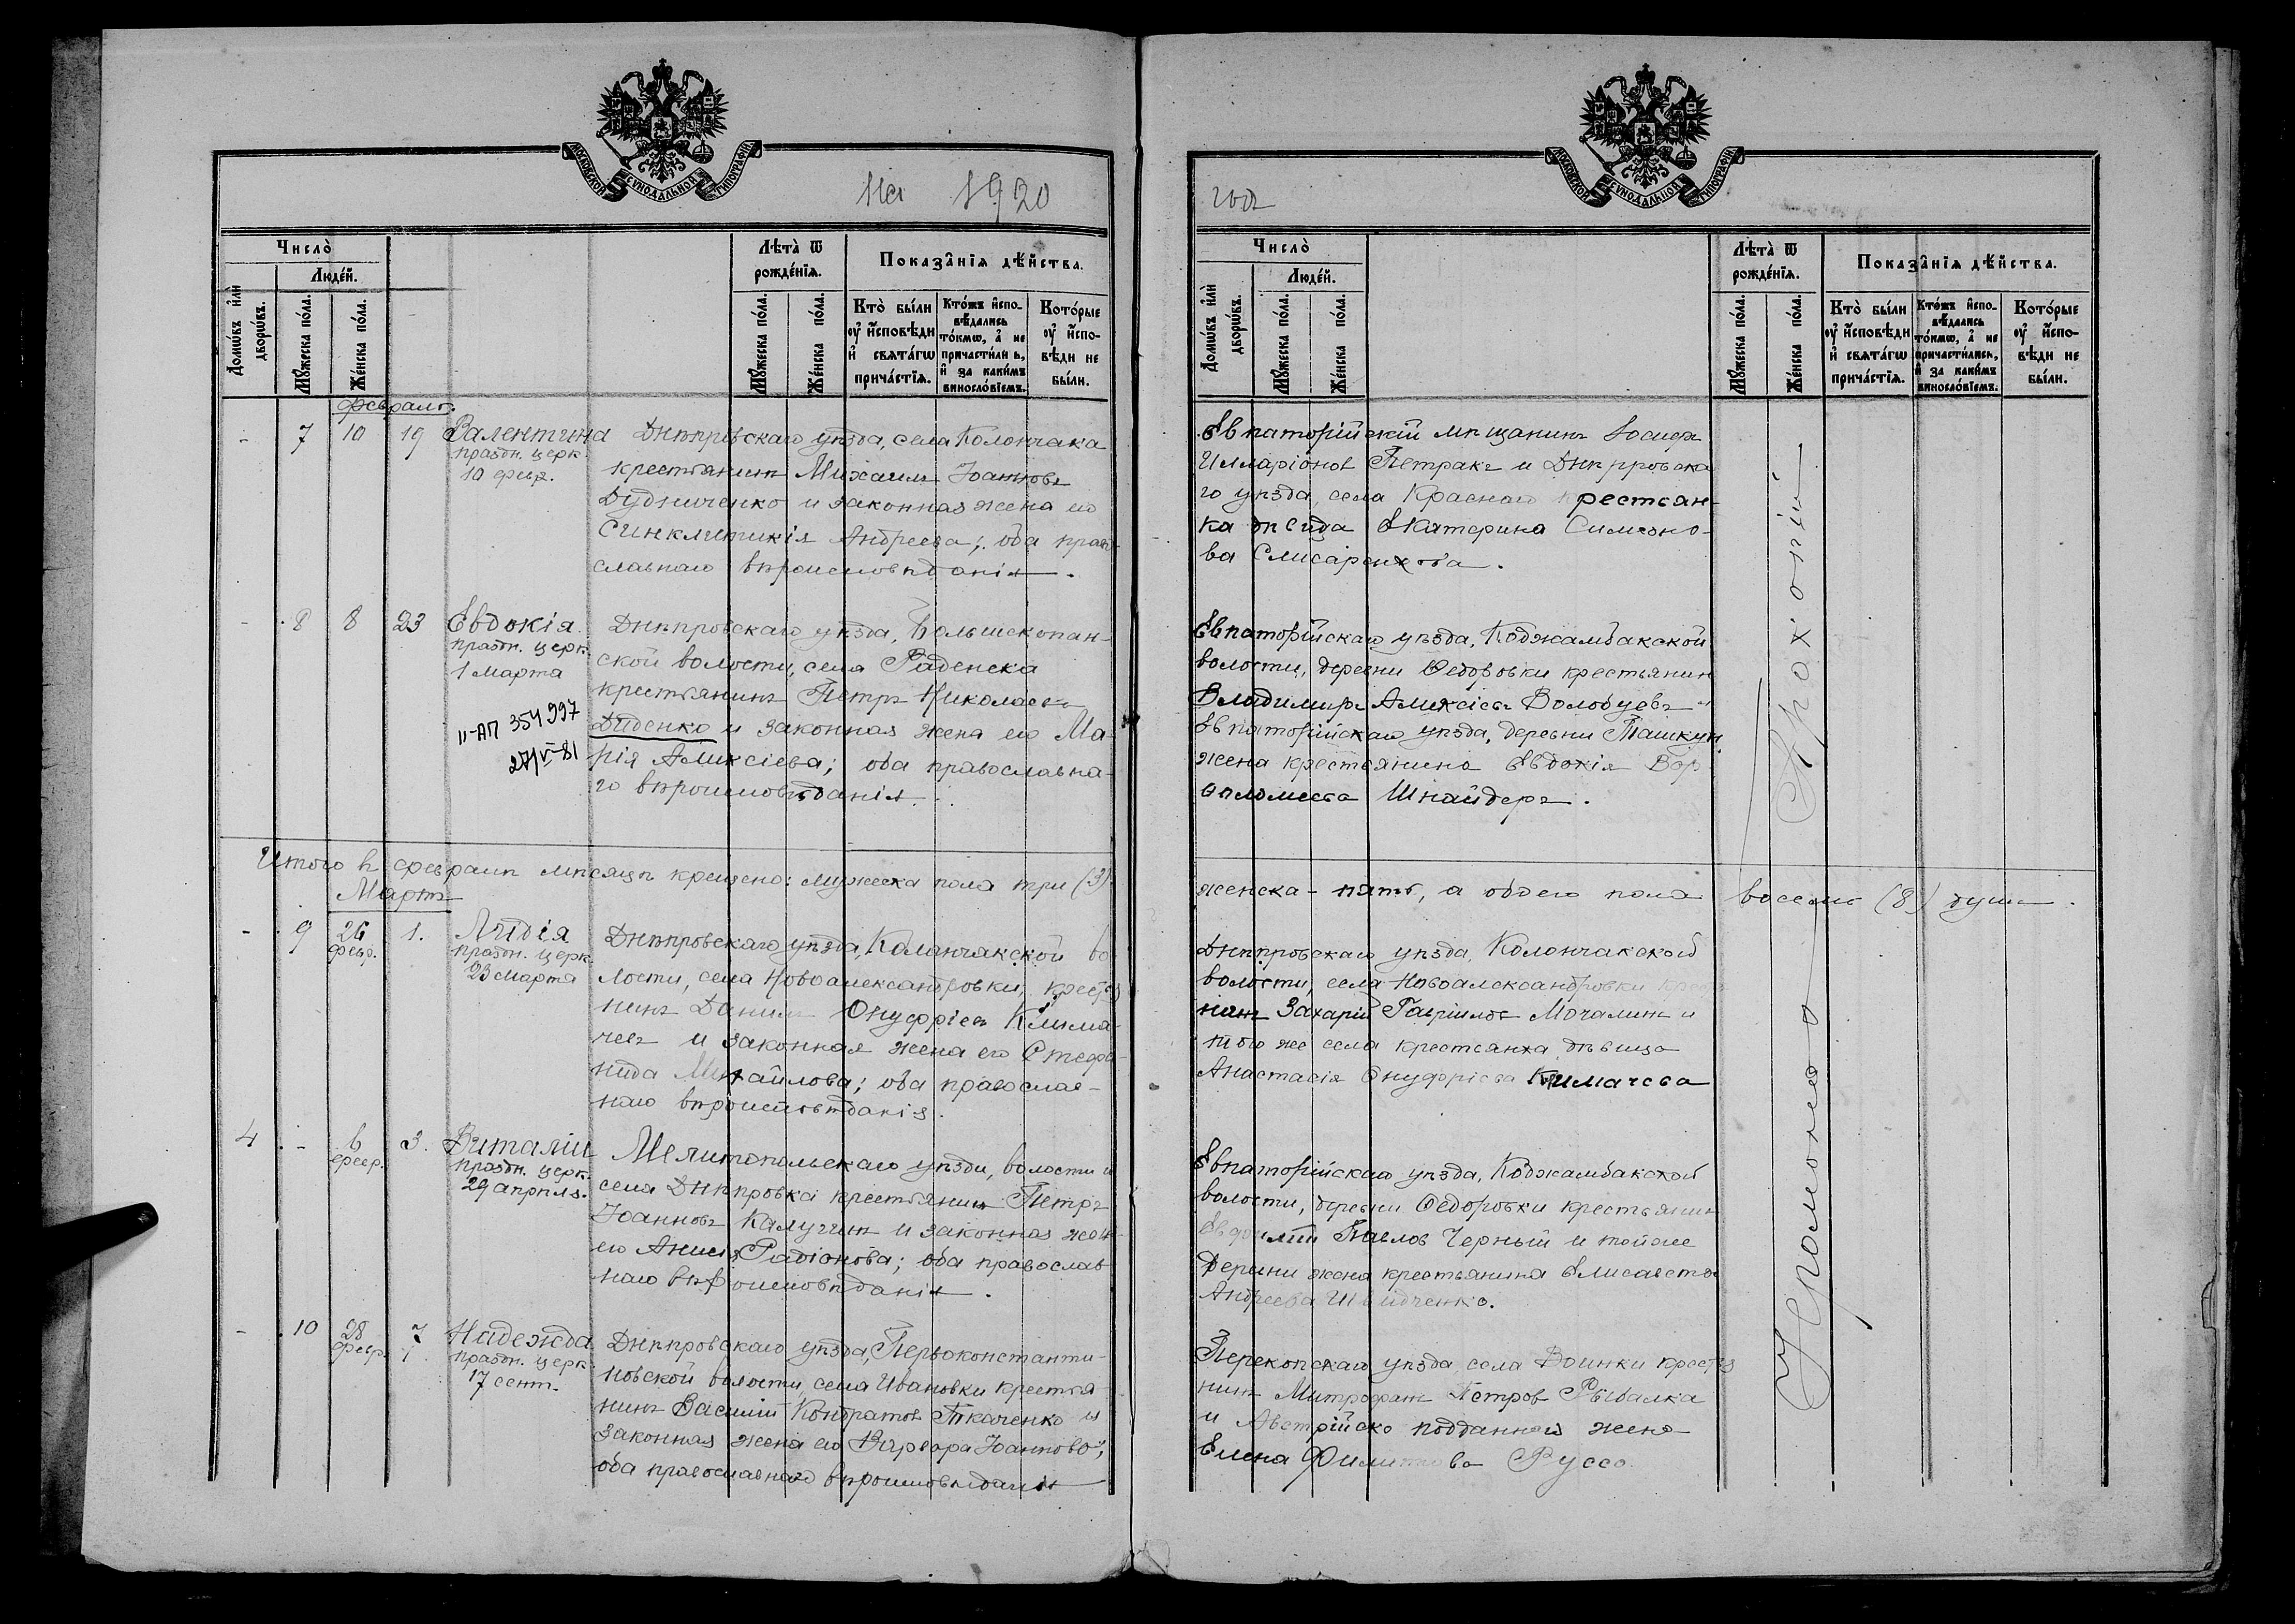 МОСКОВСКОЙ СѴНОДАЛЬНОЙ ТИПОГРАФІИ
На 1920
Число̀
Люде́й.
Домѡ́въ и҆лѝ дворѡ́въ.
Мꙋ́жеска по́ла.
Же́нска по́ла.
Лѣта̀ ѿ рожде́нїѧ.
Мꙋ́жеска по́ла.
Же́нска по́ла.
Показа̑нїѧ дѣ́йства.
Кто̀ бы́ли ᲂу҆ и҆сповѣ́ди и҆ свѧта́гѡ прича́стїѧ.
Кто́жъ и҆спо-вѣ́дались то́кмѡ, а҆ не причасти́лись, и҆ за каки́мъ винносло́вїемъ.
Кото́рые ᲂу҆ и҆спо-вѣ́ди не бы́ли.
февраль.
- 7 10 19 Валентина
праздн. церк.
10 февр.
Днѣпровскаго уѣзда, села Колончака
крестьянинъ Михаилъ Іоанновъ
Дудниченко и законная жена его
Синклитикія Андреева; оба право-
славнаго вѣроисповѣданія.
- 8 8 23 Евдокія
праздн. церк.
1 Марта
II-АП 354997
27/V-81
Днѣпровскаго уѣзда, Большекопан-
ской волости, села Раденска
крестьянинъ Петръ Николаевъ
Диденко и законная жена его Ма-
рія Алексіева; оба православна-
го вѣроисповѣданія.
Итого въ февралѣ мѣсяцѣ крещено: мужеска пола три (3)
Мартъ
- 9 26 февр. 1. Лидія
праздн. церк.
23 Марта
Днѣпровскаго уѣзда, Каланчакской во-
лости, села Новоалександровки, крестья
нинъ Даниилъ Онуфріевъ Клима-
чевъ и законная жена его Стефа-
нида Михайлова; оба православ-
наго вѣроисповѣданія.
4 - 6 февр. 3. Виталій
праздн. церк.
29 апрѣля.
Мелитопольскаго уѣзда, волости и
села Днѣпровки крестьянинъ Петръ
Іоанновъ Калугинъ и законная жена
его Анисія Радіонова; оба православ
наго вѣроисповѣданія.
- 10 28 февр. 7 Надежда
праздн. церк.
17 сент.
Днѣпровскаго уѣзда, Первоконстанти-
новской волости, села Ивановки крестья
нинъ Василій Кондратовъ Ткаченко и
законная жена его Варвара Іоаннова;
оба православнаго вѣроисповѣданія
МОСКОВСКОЙ СѴНОДАЛЬНОЙ ТИПОГРАФІИ
годъ
Число̀
Люде́й.
Домѡ́въ и҆лѝ дворѡ́въ.
Мꙋ́жеска по́ла.
Же́нска по́ла.
Лѣта̀ ѿ рожде́нїѧ.
Мꙋ́жеска по́ла.
Же́нска по́ла.
Показа̑нїѧ дѣ́йства.
Кто̀ бы́ли ᲂу҆ и҆сповѣ́ди и҆ свѧта́гѡ прича́стїѧ.
Кто́жъ и҆спо-вѣ́дались то́кмѡ, а҆ не причасти́лись, и҆ за каки́мъ винносло́вїемъ.
Кото́рые ᲂу҆ и҆спо-вѣ́ди не бы́ли.
Евпаторійскій мѣщанинъ Іосифъ
Илларіоновъ Петракъ и Днѣпровска
го уѣзда, села Краснаго крестьян-
ка дѣвица Екатерина Симеоно-
ва Слисаренкова.
Евпаторійскаго уѣзда, Коджамбакской
волости, деревни Ѳедоровки крестьянин
Владимиръ Алексіевъ Волобуевъ и
Евпаторійскаго уѣзда, деревни Ташкуи
жена крестьянина Евдокія Вар-
ѳоломеева Шнайдеръ.
женска - пять, а обоего пола восемь (8) душъ.
Днѣпровскаго уѣзда, Колончакской
волости, села Новоалександровки крестья
нинъ Захарій Гавріиловъ Мочалинъ и
того же села крестьянка дѣвица
Анастасія Онуфріева Климачева
Евпаторійскаго уѣзда, Коджамбакской
волости, деревни Ѳедоровки крестьянин
Евфимій Павлов Черный и тойже
деревни жена крестьянина Елисавета
Андреева
Перекопскаго уѣзда села Воинки крестья
нинъ Митрофанъ Петров Рыбалка
и Австрійско подданная жена
Елена Филиппова Руссо.